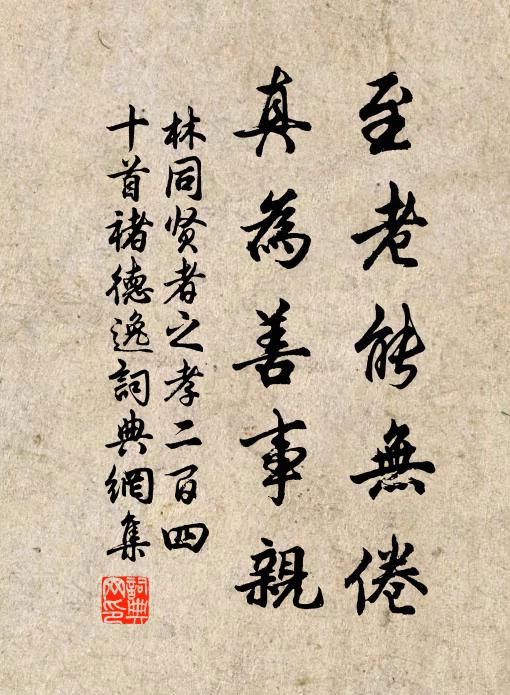 至老能無倦
真為善事親
林同贤者之孝二百四
十首褚德逸詞典網集
詞典
网印